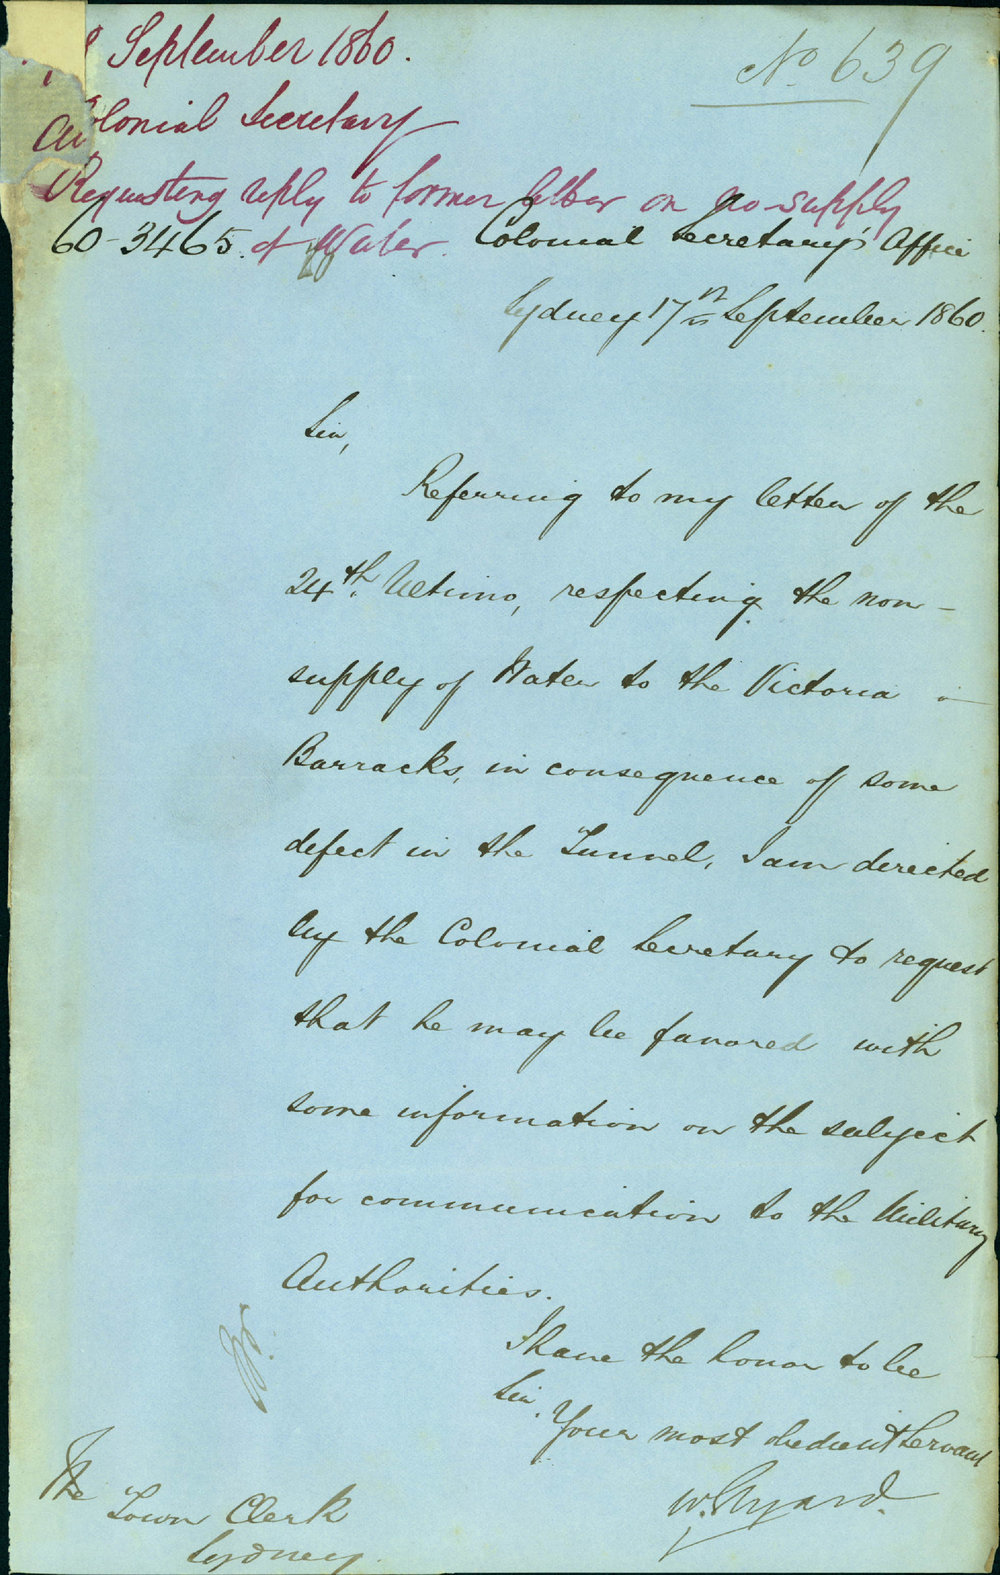 September 1860.
No 639
Colonial Secretary
Requesting reply to former letter on no-supply
60-3465. of Water.
Colonial Secretary's Office
Sydney 17th September 1860.
Sir,
Referring to my letter of the
24th. Ultimo, respecting the non-
supply of Water to the Victoria -
Barracks, in consequence of some
defect in the Tunnel, I am directed
by the Colonial Secretary to request
that he may be favored with
some information on the subject
for communication to the Military
Authorities.
I have the honor to be
Sir,
Your most obedient Servant
The
Town Clerk
Sydney.